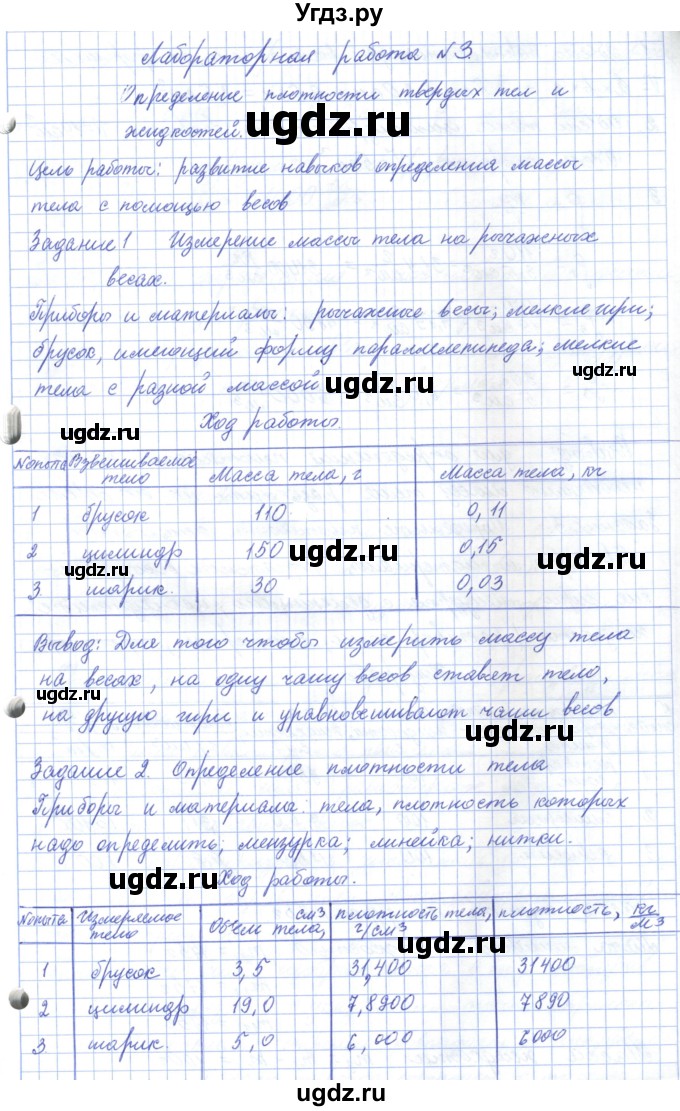 Угдз.ру
Лабораторная работа №3
Определение плотности твердых тел и
жидкостей.
ugdz.ru
Цель работы: развитие навыков определения массы
тела с помощью весов
Задание 1 Измерение массы тела на рычажных
весах.
Приборы и материалы: рычажные весы; мелкие гири;
брусок, имеющий форму параллелепипеда; мелкие
тела с разной массой
ugdz.ru
Ход работы
ugdz.ru
№опыта Взвешиваемое тело Масса тела, г Масса тела, кг
1 брусок 110 0,11
2 цилиндр 150 0,15
ugdz.ru
ugdz.ru
ugdz.ru
3 шарик. 30 0,03
Вывод: Для того чтобы измерить массу тела
на весах, на одну чашу весов ставят тело,
ugdz.ru
на другую гири и уравновешивают чаши весов
ugdz.ru
Задание 2. Определение плотности тела
Приборы и материала: тела, плотность которых
надо определить; мензурка; линейка; нитки.
ugdz.ru
Ход работы.
№опыта Измеряемое тело Объем тела, см3 плотность тела, г/см3 плотность, кг/м3
ugdz.ru
1 брусок 3,5 31,400 31400
2 цилиндр 19,0 7,8900 7890
3 шарик. 5,0 6,000 6000
ugdz.ru
ugdz.ru